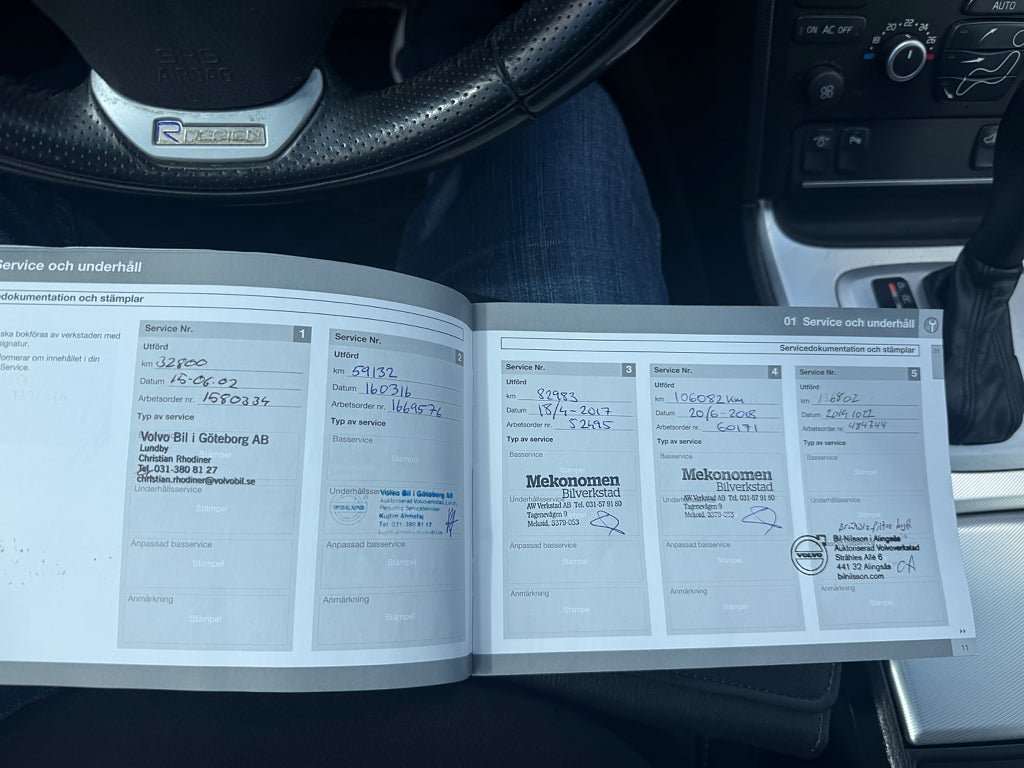 SRS
AIRBAG
R DESIGN
AUTO
ON AC OFF
18 20 22 24 26
Service och underhåll
edokumentation och stämplar
ska bokföras av verkstaden med
signatur.
formerar om innehållet i din
Service.
Service Nr. 1
Utförd
km 32800
Datum 15-06.02
Arbetsorder nr. 1580334
Typ av service
Volvo Bil i Göteborg AB
Lundby
Christian Rhodiner
Tel. 031-380 81 27
christian.rhodiner@volvobil.se
Stämpel
Underhållsservice
Stämpel
Anpassad basservice
Stämpel
Anmärkning
Stämpel
Service Nr. 2
Utförd
km 59132
Datum 160316
Arbetsorder nr. 1669576
Typ av service
Basservice
Stämpel
Underhållsservice
Volvo Bil i Göteborg AB
Auktoriserad Volvoverkstad, Lundby
Personlig Servicetekniker
Kujtim Ahmetaj
Tel 031-380 81 17
Anpassad basservice
Stämpel
Anmärkning
Stämpel
01 Service och underhåll
Servicedokumentation och stämplar
01
Service Nr. 3
Utförd
km 82983
Datum 18/4-2017
Arbetsorder nr. 52495
Typ av service
Basservice
Stämpel
Mekonomen
Bilverkstad
Underhållsservice
AW Verkstad AB Tel. 031-57 91 80
Tagenevägen 9
Mekoid. 5379-053
Anpassad basservice
Stämpel
Anmärkning
Stämpel
Service Nr. 4
Utförd
km 106082 km
Datum 20/6-2018
Arbetsorder nr. 60171
Typ av service
Basservice
Mekonomen
Bilverkstad
Underhållsservice
AW Verkstad AB Tel. 031-57 91 80
Tagenevägen 9
Mekoid. 5379-053
Anpassad basservice
Stämpel
Anmärkning
Stämpel
Service Nr. 5
Utförd
km 136802
Datum 20191022
Arbetsorder nr. 484744
Typ av service
Basservice
Stämpel
Underhållsservice
Stämpel
Bränslefilter bytt
VOLVO
Bil-Nilsson i Alingsås
Auktoriserad Volvoverkstad
Stråhles Allé 6
441 32 Alingsås
bilnilsson.com
Anmärkning
Stämpel
11